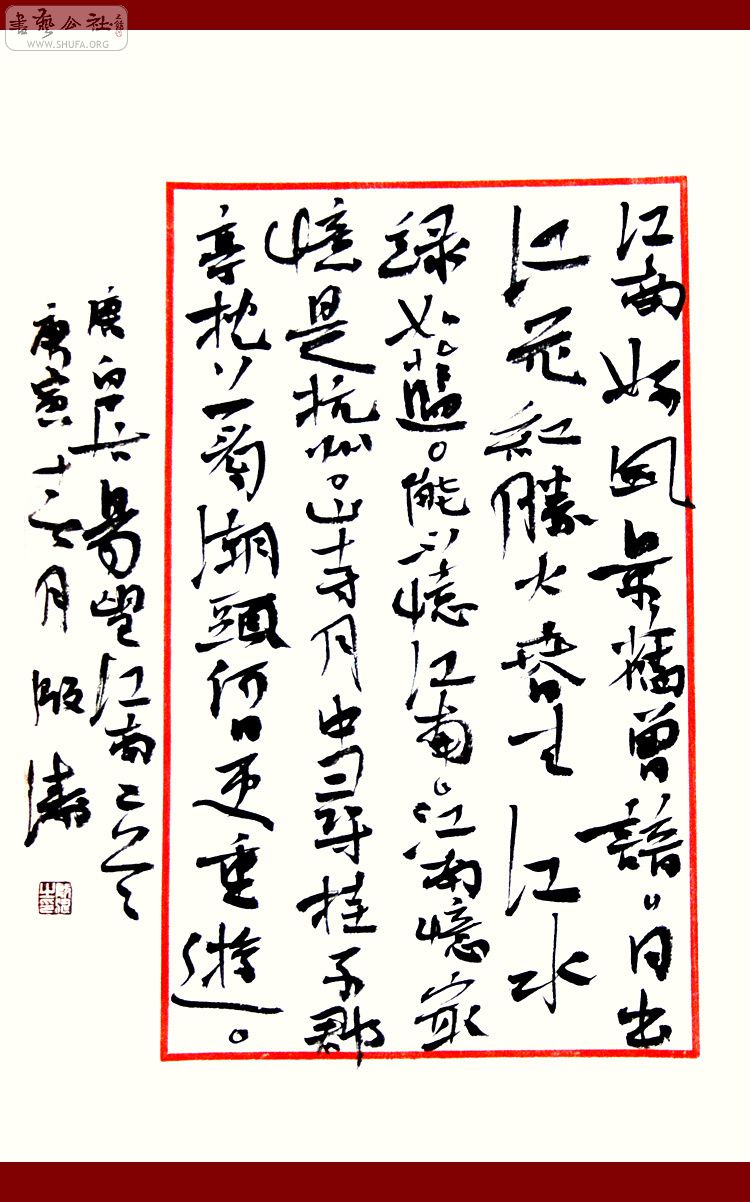 書藝公社
WWW.SHUFA.ORG
江南好風景舊曾諳日出
江花紅勝火春来江水
緑如藍。能不憶江南。江南憶最
憶是杭州。山寺月中尋桂子郡
亭枕上看潮頭何日更重遊。
唐白居易望江南二
庚寅十二月濤